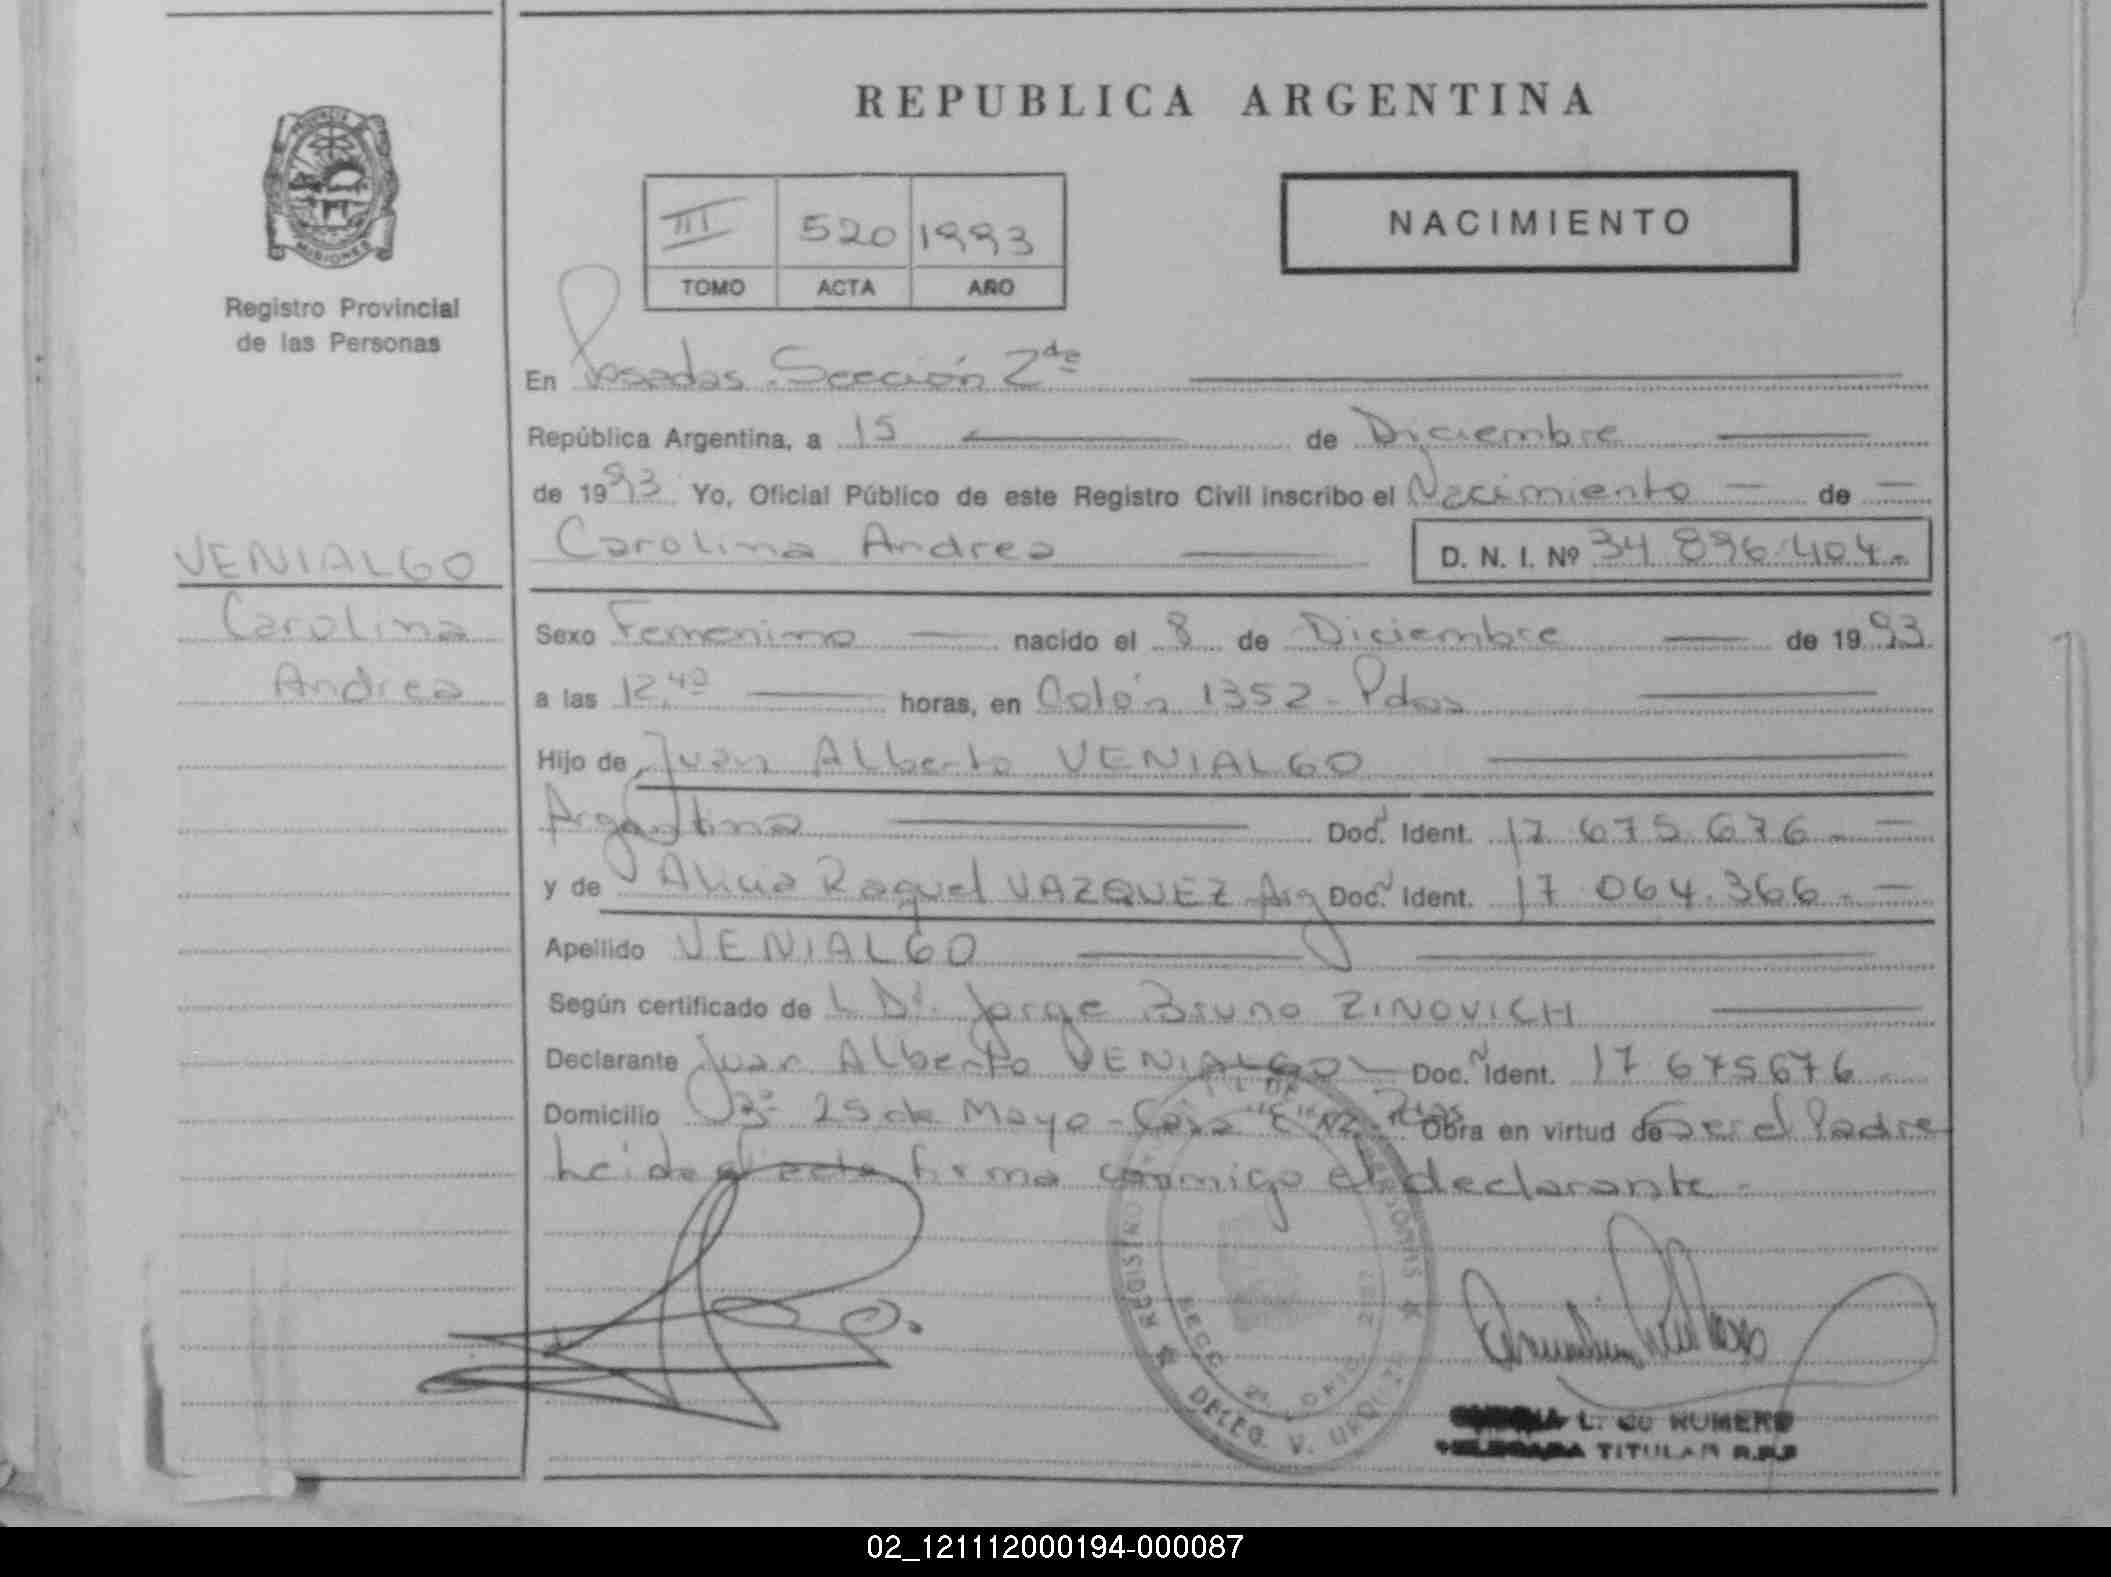 REPUBLICA ARGENTINA
PROVINCIA DE
MISIONES
Registro Provincial
de las Personas
III 520 1993
TOMO ACTA AÑO
NACIMIENTO
En Posadas Sección 2da
República Argentina, a 15 de Diciembre
de 1993 Yo, Oficial Público de este Registro Civil inscribo el Nacimiento de
VENIALGO
Carolina
Andrea
Carolina Andrea D. N. I. Nº 34.896.404.-
Sexo Femenino nacido el 8 de Diciembre de 1993.
a las 12,40 horas, en Colón 1352 - Pdas
Hijo de Juan Alberto VENIALGO
Argentino Doc. Ident. 17.675.676.-
y de Alicia Raquel VAZQUEZ Arg Doc. Ident. 17.064.366.-
Apellido VENIALGO
Según certificado de L Dr. Jorge Bruno ZINOVICH
Declarante Juan Alberto VENIALGO - Doc. Ident. 17.675676
Domicilio 25 de Mayo - Casa Obra en virtud de Ser el Padre
Leida el acta firma conmigo el declarante -
REGISTRO PERSONAS
SECC. 2ª OFIC.
DELEG. V. URQUIZA
L. de ROMERO
TITULAR R.P.P
02_121112000194-000087